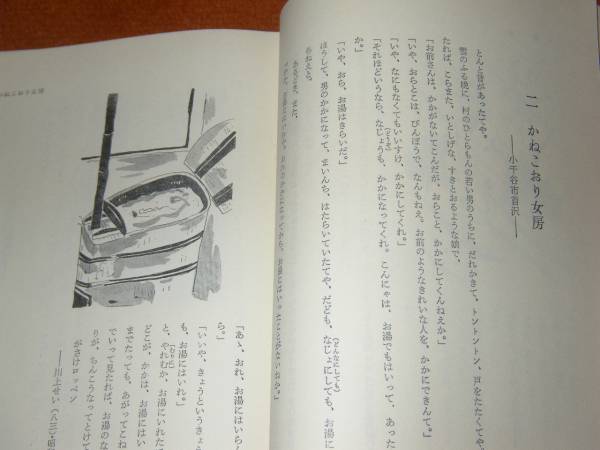 二 かねこおり女房
――小千谷市首沢――
とんと昔があったてや。
雪のふる晩に、村のひとらもんの若い男のうちに、だれかきて、トントントン、戸をたたくてや。
たれば、こらまた、いとしげな、すきとおるような娘で、
「お前さんは、かかがないてこんだが、おらこと、かかにしてくんねえか。」
「いや、おらとこは、びんぼうで、なんもねえ。お前のようなきれいな人を、かかにできんて。」
「いや、なにもなくてもいいすけ、かかにしてくれ。」
「それほどいうなら、なじょうも、かかになってくれ。こんにゃは、お湯でもはいって、あった
か。」
「いや、おら、お湯はきらいだ。」
ほうして、男のかかになって、まいんち、はたらいていたてや。だども、なじょにしても、お湯に
らねえと。
あるとき、また、
「かか、お湯にはいれや。
「あゝ、おれ、お湯にはいらく
ら。」
「いいや、きょうというきょ
も、お湯にはいれ。」
と、やれむか、お湯にいれた
どこが、かかは、お湯にはい
までたっても、あがってこね
でいって見たれば、お湯のな
りが、ちんこうなってとけて
がさけロッペン
――川上せい（八三）・昭